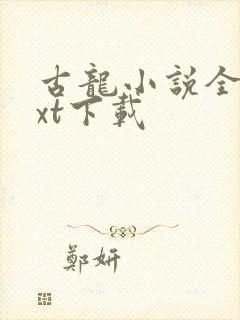 古龍小説全
xt下載
鄭妍